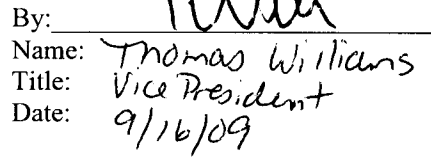 By:
Name: Thomas Williams
Title: Vice President
Date: 9/16/09